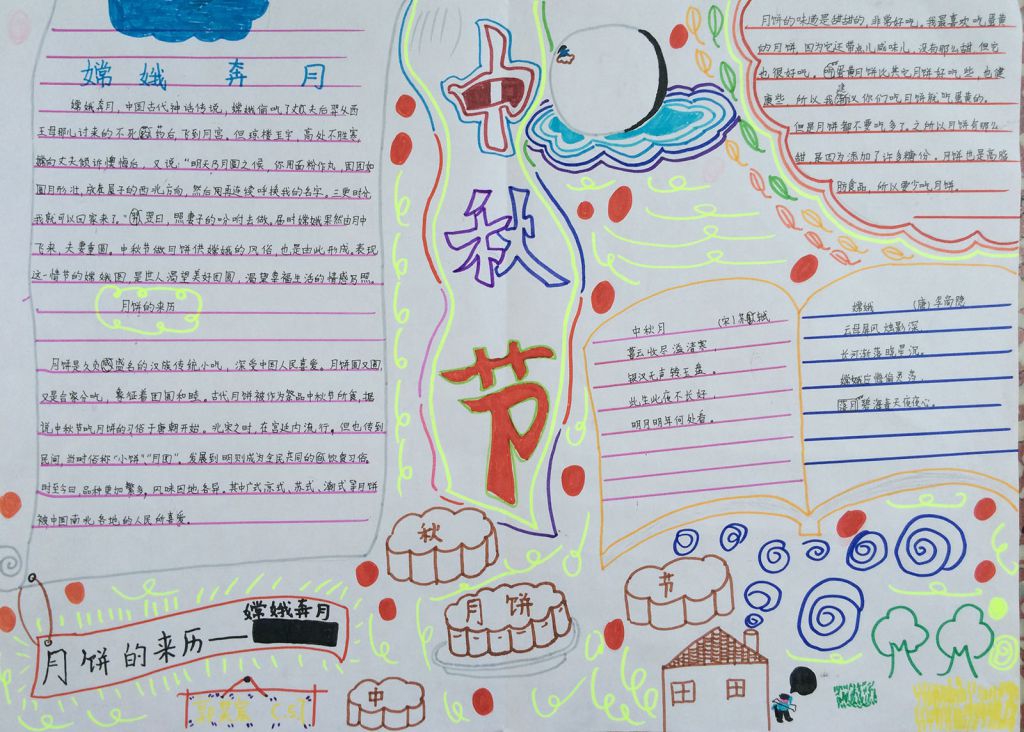 嫦娥奔月
嫦娥奔月,中国古代神话传说,嫦娥偷吃了丈夫后羿从西
王母那儿讨来的不死药后,飞到月宫。但琼楼玉宇,高处不胜寒,
嫦向丈夫倾诉懊悔后,又说:“明天乃月圆之候,你用面粉作丸,团团如
圆月形壮,放在屋子的西北方向,然后再连续呼唤我的名字。三更时分,
我就可以回家来了。”翌日,照妻子的吩咐去做,届时嫦娥果然由月中
飞来,夫妻重圆。中秋节做月饼供嫦娥的风俗,也是由此形成。表现
这一情节的嫦娥图,是世人渴望美好团圆,渴望幸福生活的情感写照。
月饼的来历
月饼是久负盛名的汉族传统小吃,深受中国人民喜爱。月饼圆又圆,
又是合家分吃,象征着团圆和睦。古代月饼被作为祭品中秋节所食,据
说中秋节吃月饼的习俗于唐朝开始。北宋之时,在宫廷内流行。但也传到
民间,当时俗称“小饼”“月团”。发展到明则成为全民共同的饮食习俗。
时至今日,品种更加繁多,风味因地各异。其中广式、京式、苏式、潮式等月饼
被中国南北各地的人民所喜爱。
月饼的来历一
嫦娥奔月
中
秋
节
月饼的味道是甜甜的,非常好吃。我最喜欢吃蛋黄
的月饼,因为它还带点儿咸味儿,没有那么甜,但它
也很好吃,而蛋黄月饼比其它月饼好吃些,也健
康些,所以我建议你们吃月饼就吃蛋黄的。
但是月饼都不要吃多了。之所以月饼有那么
甜,是因为添加了许多糖份。月饼也是高脂
肪食品,所以要少吃月饼。
中秋月 (宋)苏轼
暮云收尽溢清寒,
银汉无声转玉盘。
此生此夜不长好,
明月明年何处看。
嫦娥 (唐)李商隐
云母屏风烛影深,
长河渐落晓星沉。
嫦娥应悔偷灵药,
碧海青天夜夜心。
秋
月饼
节
中